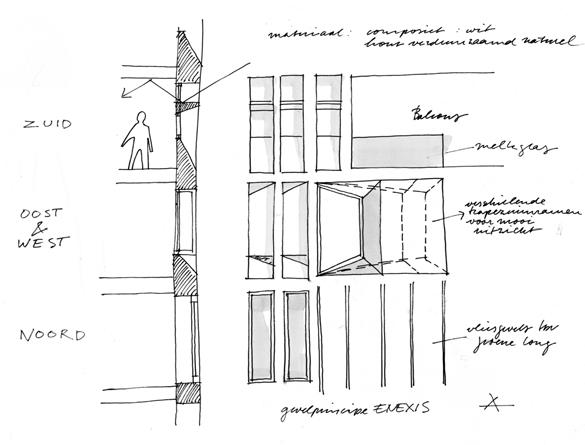 materiaal: composiet: wit
hout verduurzaamd naturel
ZUID
Balcony
melkglas
OOST
&
WEST
verschillende
trapeziumramen
voor mooi
uitzicht
NOORD
vliesgevels tbv
groene long
gevelprincipe ENEXIS